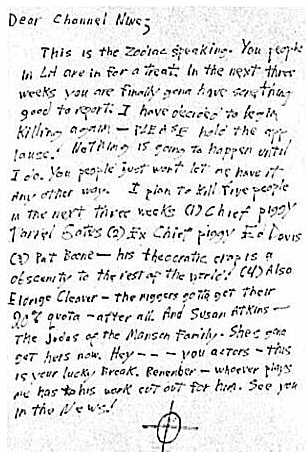 Dear Channel Nine;
This is the Zodiac speaking. You people
in LA are in for a treat. In the next three
weeks you are finally gona have something
good to report. I have decided to begin
killing again - PLEASE hold the app
lause! Nothing is going to happen until
I do. You people just wont let me have it
any other way. I plan to kill five people
in the next three weeks (1) Chief piggy
Darrel Gates (2) Ex Chief piggy Ed Davis
(3) Pat Boone - his theocratic crap is a
obscenity to the rest of the world! (4) Also
Eldrige Cleaver - the niggers gotta get their
20% quota - after all. And Susan Atkins -
the Judas of the Manson Family. She's gona
get hers now. Hey - - - you actors - this
is your lucky break. Remember - whoever plays
me has his work cut out for him. See you
in the News!